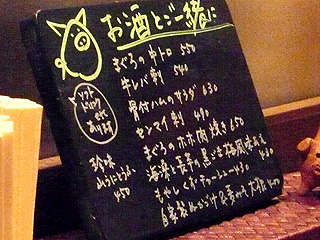 お酒とご一緒に
まぐろの中トロ 550
牛レバ刺 540
骨付ハムのサラダ 630
センマイ刺 490
まぐろのホホ肉焼き 650
海藻と長芋の黒ごま梅風味あえ 430
もやしくやチャーシュー 430
ソフト
ドリンク
etc
あります
珍味
450